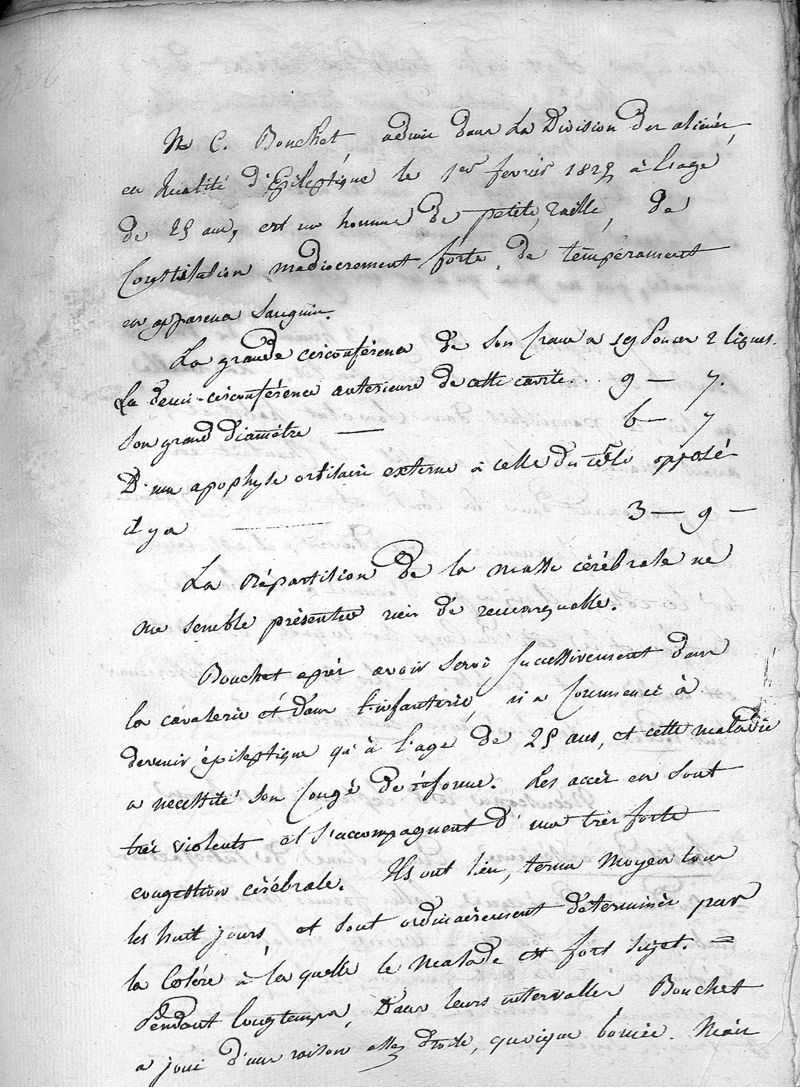 M C. Bouchet, admis dans La Division des aliénés,
en qualité d'Epileptique le 1er fevrier 1825 à l'age
de 25 ans, est un homme de petite taille, de
Constitution mediocrement forte, de tempérament
en apparence Sanguin.
La grande circonférence de son Crane a 19 Pouces 2 lignes.
La demi-circonférence anterieure de cette cavité.. 9 — 7.
Son grand diamètre — 6 — 7
D'une apophyse orbitaire externe à celle du côté opposé
il y a — 3 — 9 —
La Répartition de la masse cérébrale ne
me semble présenter rien de remarquable.
Bouchet après avoir servi successivement dans
la cavalerie et dans l'infanterie, n'a Commencé à
devenir épileptique qu'à l'age de 25 ans, et cette maladie
a necessité son Congé de réforme. Les accès en sont
très violents et s'accompagnent d'une très forte
congestion cérébrale. Ils ont lieu, terme moyen tous
les huit jours et sont ordinairement déterminés par
la Colère à la quelle le Malade est fort sujet. =
Pendant longtemps, Dans leurs intervalles Bouchet
a joui d'une raison assez droite, quoique bornée. Mais